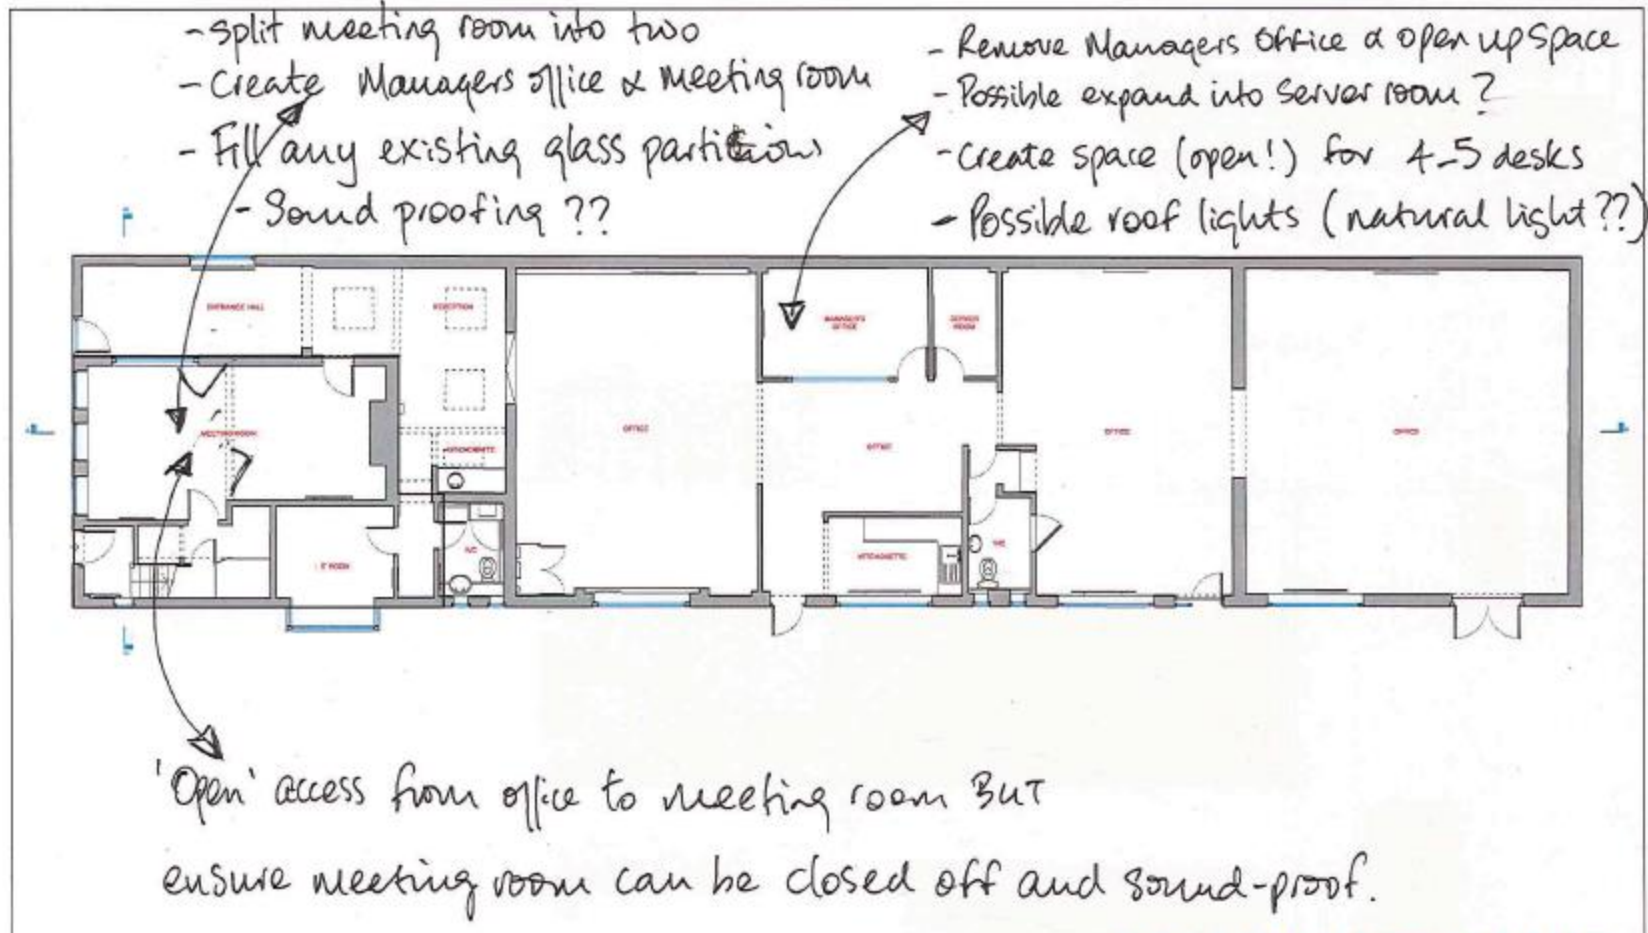 - Split meeting room into two
- Create Managers office & meeting room
- Fill any existing glass partitions
- Sound proofing ??
- Remove Managers Office & open up space
- Possible expand into Server room ?
- Create space (open!) for 4-5 desks
- Possible roof lights (natural light??)
ENTRANCE HALL
RECEPTION
MANAGER'S
OFFICE
SERVER
ROOM
MEETING ROOM
OFFICE
OFFICE
OFFICE
OFFICE
KITCHENETTE
WC
WC
KITCHENETTE
'Open' access from office to meeting room BUT
ensure meeting room can be closed off and sound-proof.